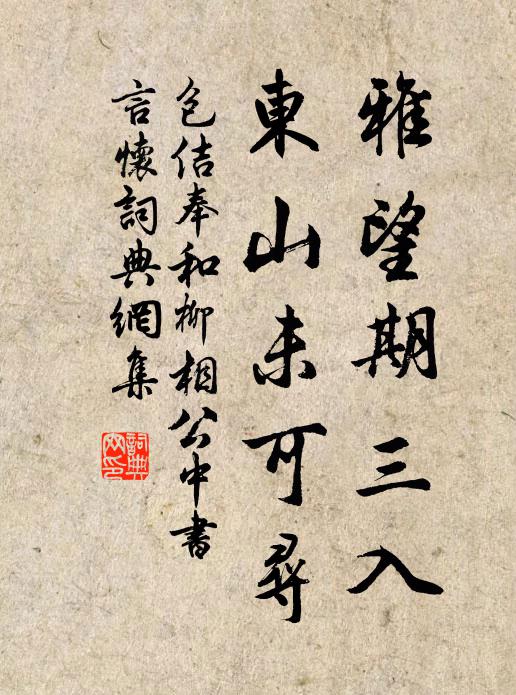 雅望期三入
東山未可尋
包佶奉和柳相公中書
言懷詞典網集
詞典
网印